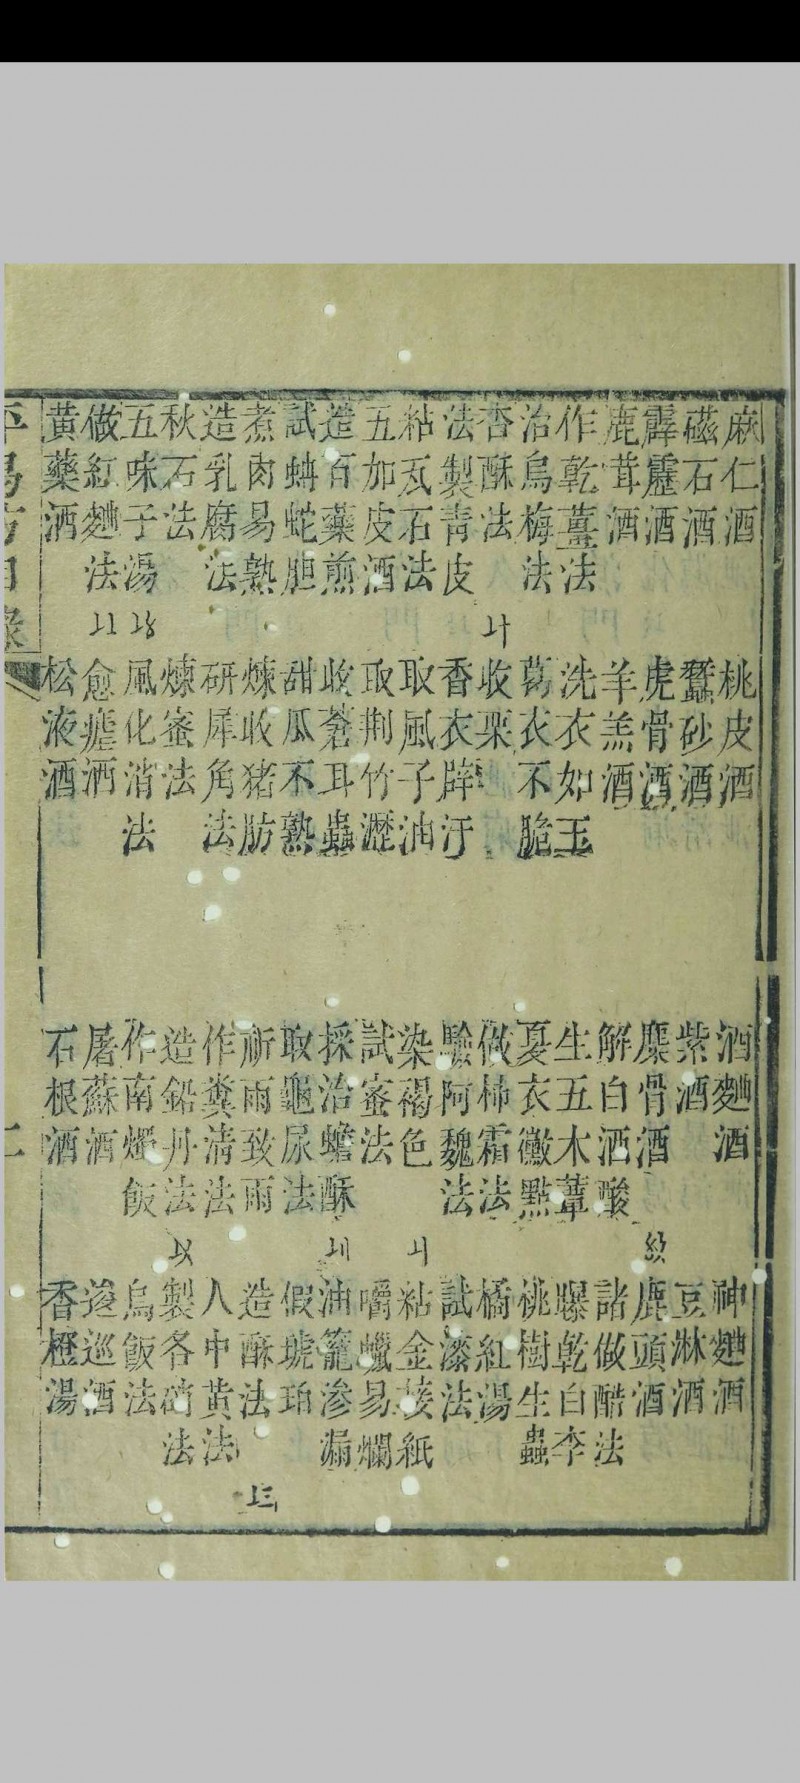 麻仁酒 桃皮酒 酒麯酒 神麯酒
磁石酒 蠶砂酒 紫酒 豆淋酒
霹靂酒 虎骨酒 麋骨酒 鹿頭酒
鹿茸酒 羊羔酒 解白酒酸 諸做醋法
作乾薑法 洗衣如玉 生五木蕈 曝乾白李
治烏梅法 葛衣不脆 憂衣黴點 桃樹生蟲
杏酥法 收栗 做柿霜法 橘紅湯
法製青皮 香衣辟汗 驗阿魏法 試漆法
粘瓦石法 取風子油 染褐色 粘金接紙
五加皮酒 取荆竹瀝 試蜜法 嚼蠟易爛
造百藥煎 收蒼耳蟲 採治蟾酥 油籠滲漏
試蚺蛇胆 甜瓜不熟 取龜尿法 假琥珀
煮肉易熟 煉收猪肪 祈雨致雨 造酥法
造乳腐法 研犀角法 作糞清法 人中黄法
秋石法 煉蜜法 造鉛丹法 製各硝法
五味子湯 風化消法 作南燭飯 烏飯法
做紅麯法 愈瘧酒 屠蘇酒 逡巡酒
黄藥酒 松液酒 石根酒 香橙湯
二